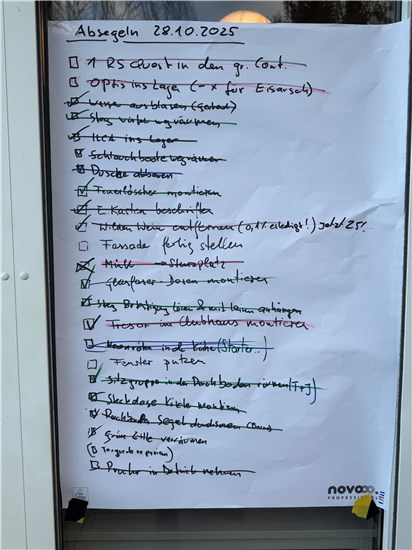 Absegeln 28.10.2025
1 RS Quest in den gr. Cont.
Optis ins Lager (-x für Eisarsch)
Wasser ausblasen
Steg wegräumen
ILCA ins Lager
Schlauchboote wegräumen
Dusche abbauen
Feuerlöscher montieren
E-Karten beschriften
Wilden Wein entfernen (0,1% erledigt!) jetzt 25%
Fassade fertig stellen
Müll → Sturzplatz
Glasfaser-Dosen montieren
Steg Befestigung lösen & mit Leinen anhängen
Tresor im Clubhaus montieren
in der (Starter..)
Fenster putzen
Sitzgruppe in den Dachboden räumen (T+J)
Steckdose montieren
Segel
Grüne verräumen
in Betrieb nehmen
novooo.
PROFESSIONAL